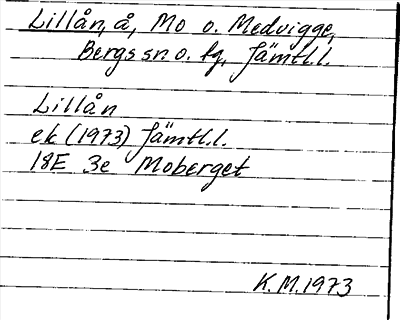 Lillån, å, Mo o. Medvigge,
Bergs sn o. tg, Jämtl.l.
Lillån
ek (1973) Jämtl.l.
18E 3e Moberget
K.M.1973